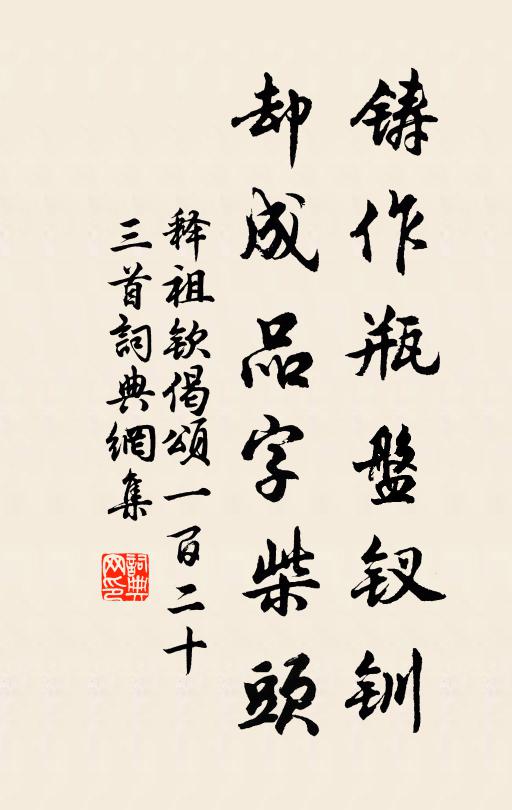 铸作瓶盤钗钏
却成品字柴頭
释祖钦偈頌一百二十
三首詞典網集
詞典网印